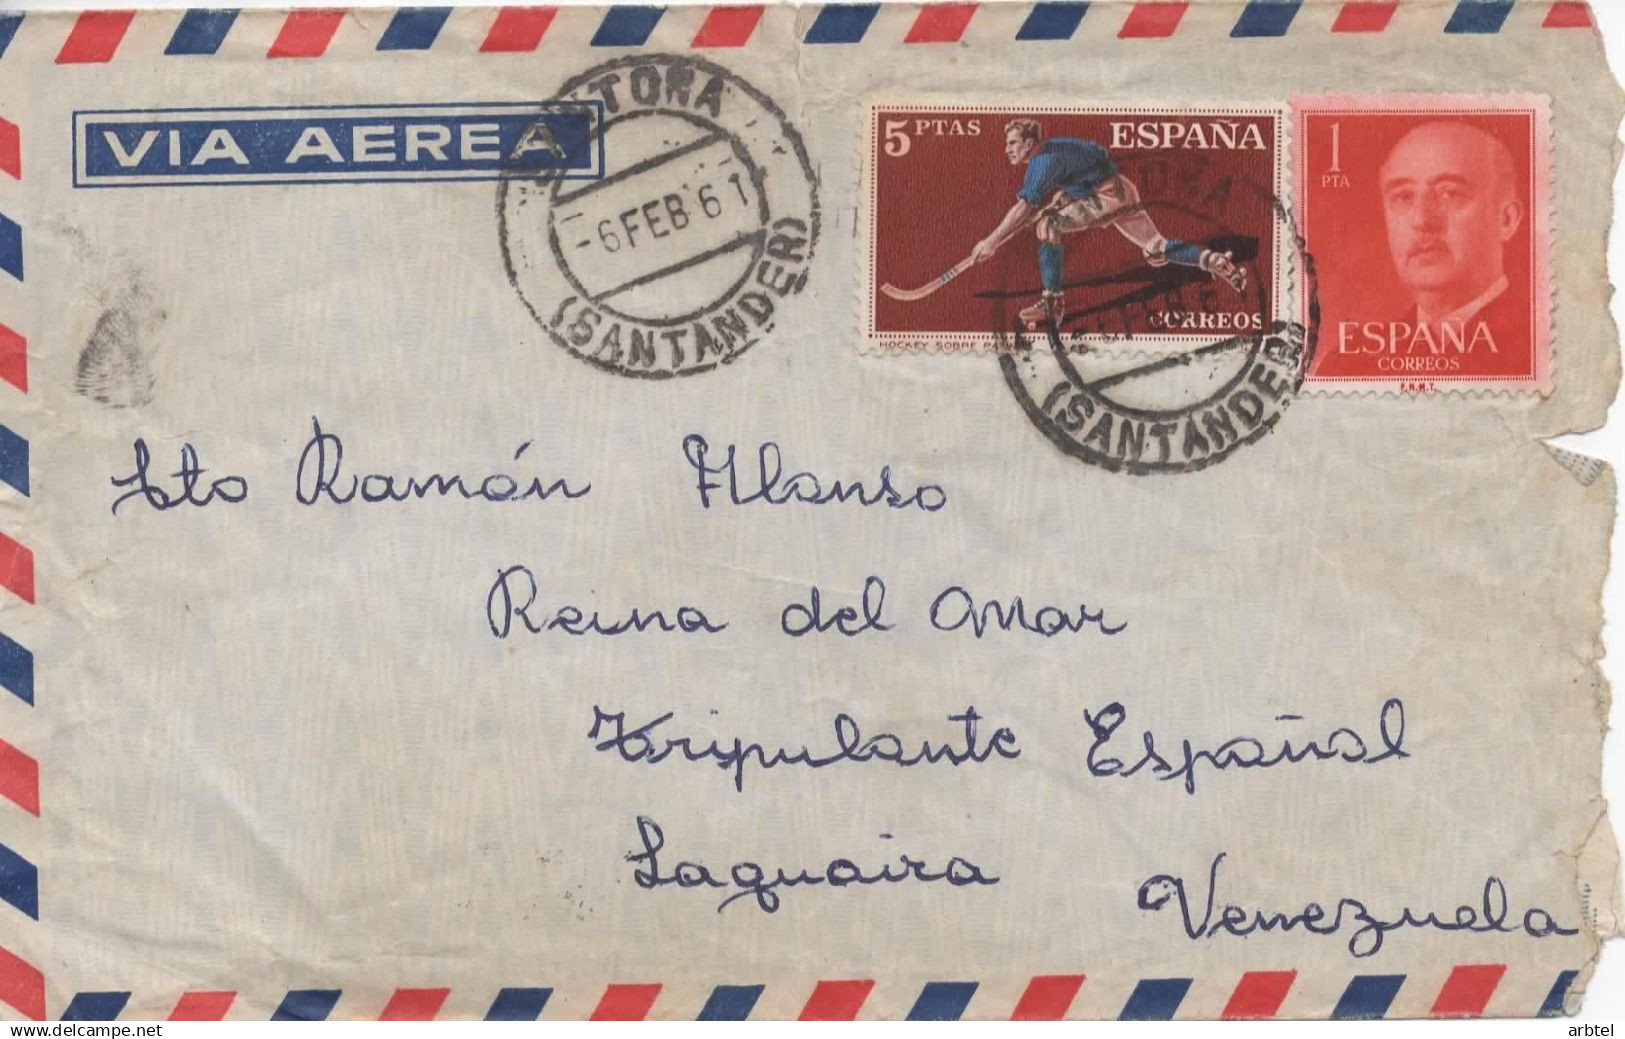 VIA AEREA
SANTOÑA
-6 FEB. 61
(SANTANDER)
5 PTAS ESPAÑA
CORREOS
HOCKEY SOBRE PA
1
PTA
ESPAÑA
CORREOS
F.N.M.T.
(SANTANDER)
Sto Ramón Alonso
Reina del Mar
Tripulante Español
Laguaira
Venezuela
arbtel